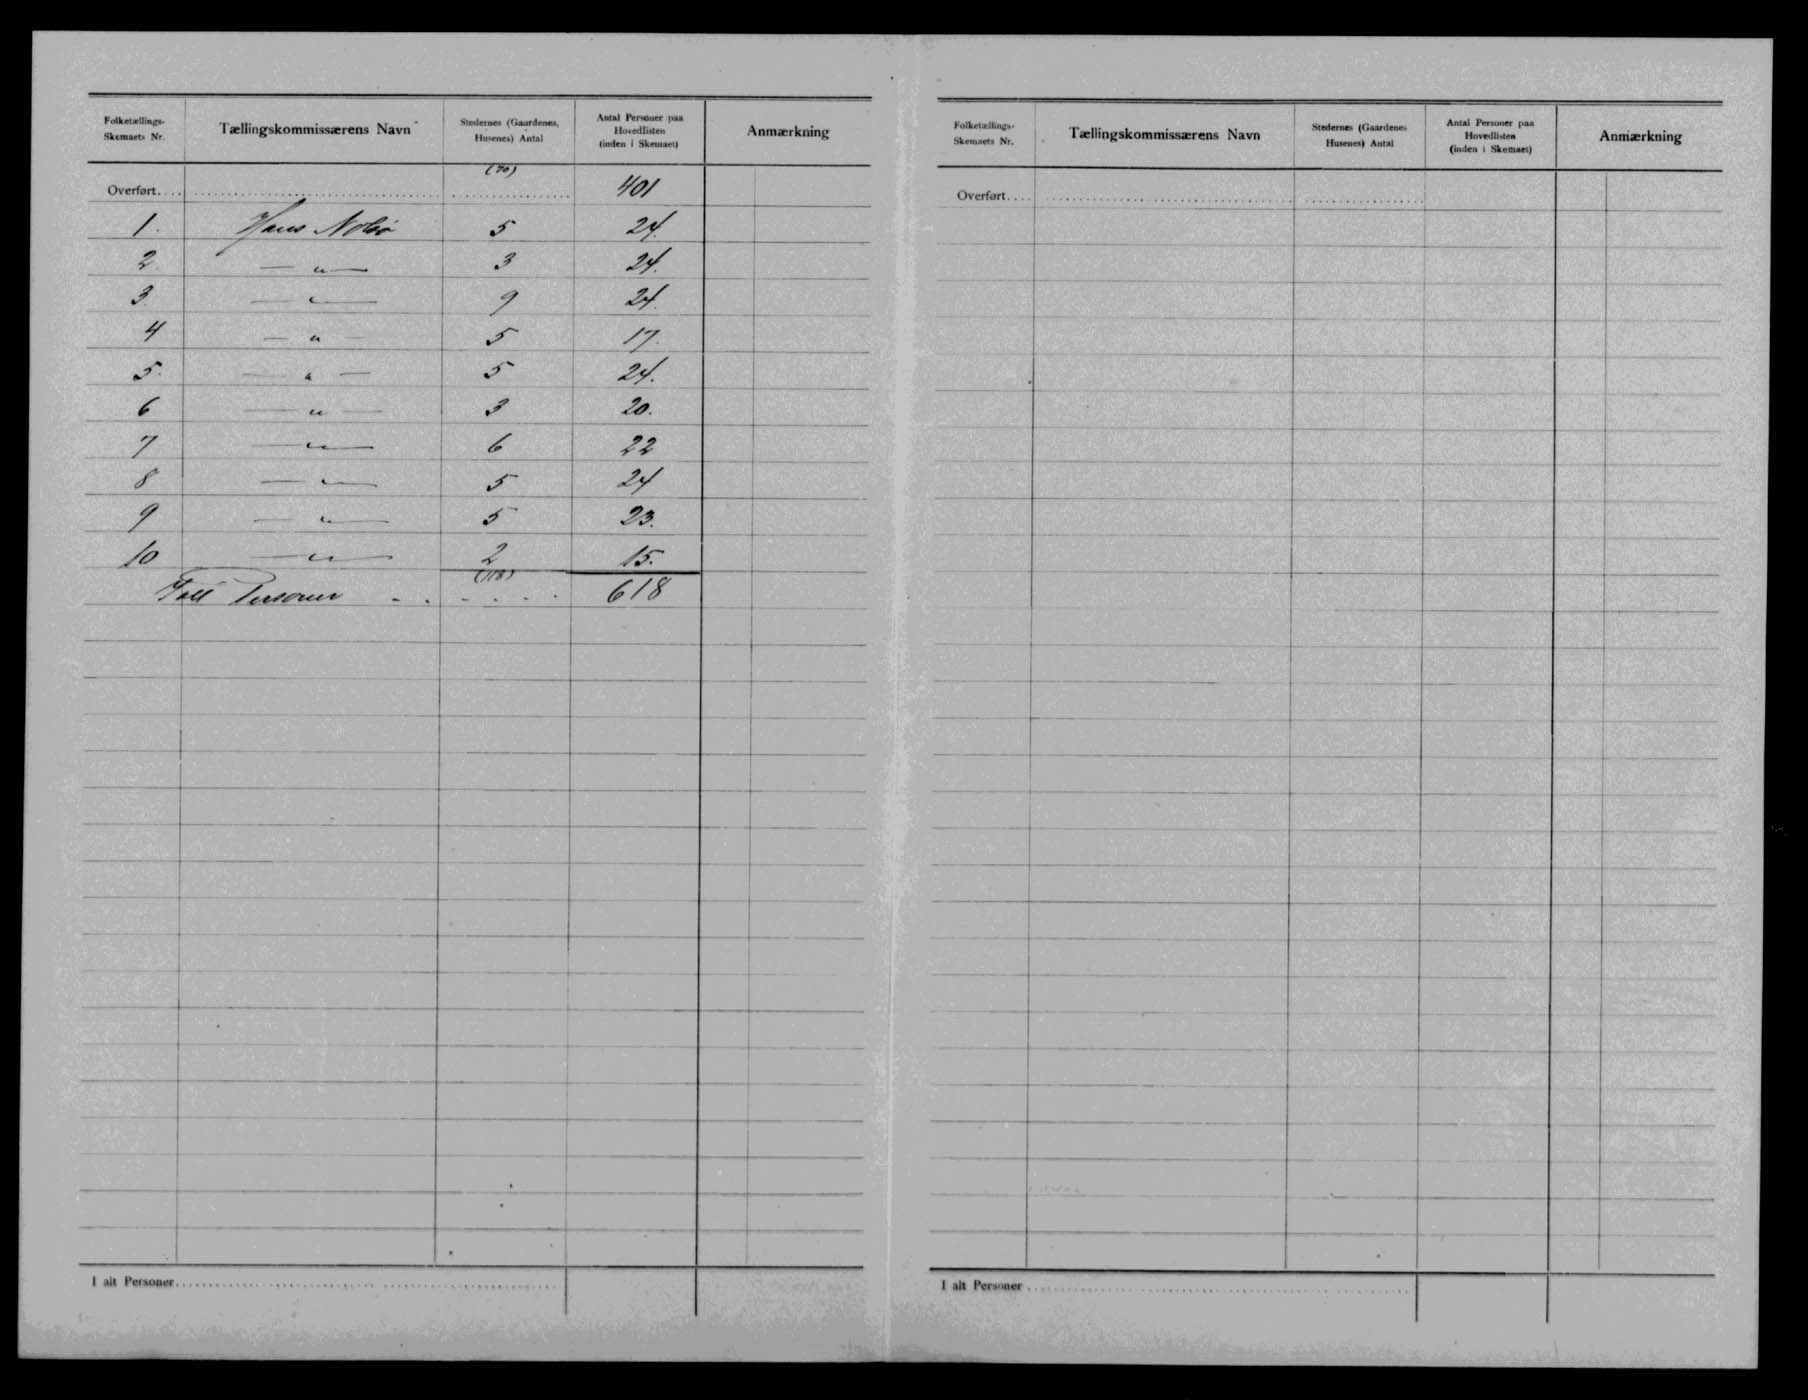 Folketællings-Skemaets Nr. Tællingskommissærens Navn Stedernes (Gaardenes, Husenes) Antal Antal Personer paa Hovedlisten (inden i Skemaet) Anmærkning
(70)
Overført.... 401
1. Hans Nolsø 5 24.
2. — " — 3 24.
3 — " — 9 24.
4 — " — 5 17.
5. — " — 5 24.
6 — " — 3 20.
7 — " — 6 22
8 — " — 5 24
9 — " — 5 23.
10 — " — 2 15.
(118)
I alt Personer - . - . - . 618
I alt Personer
Folketællings-Skemaets Nr. Tællingskommissærens Navn Stedernes (Gaardenes Husenes) Antal Antal Personer paa Hovedlisten (inden i Skemaet) Anmærkning
Overført....
I alt Personer